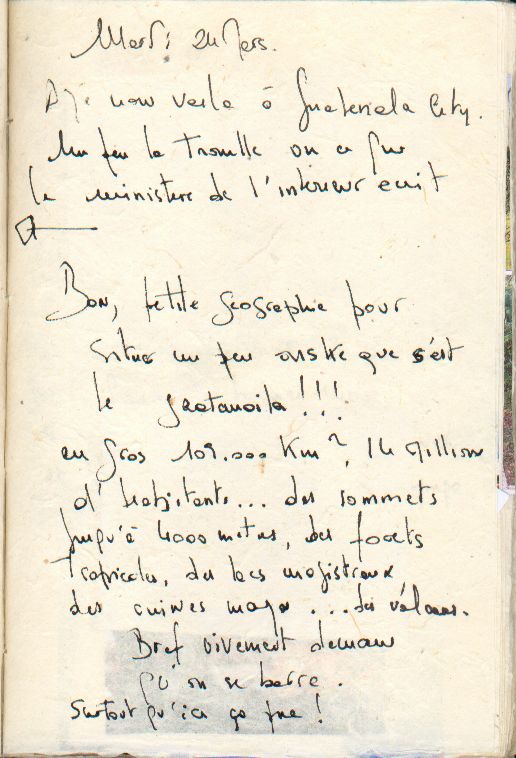 Mardi 24 Mars.
nous voila à Guatemala City.
Un peu la trouille on a lu
le ministère de l'interieur ecrit
Bon, petite geographie pour
situer un peu que s'est
le guatamoila !!!
en gros 109.000 Km², 14 million
d'habitants... des sommets
jusqu'à 4000 metres, des forets
tropicales, des lacs magistraux
des ruines maya ... des vélcans.
Bref vivement demain
qu'on se barre.
Surtout qu'ici ça pue !